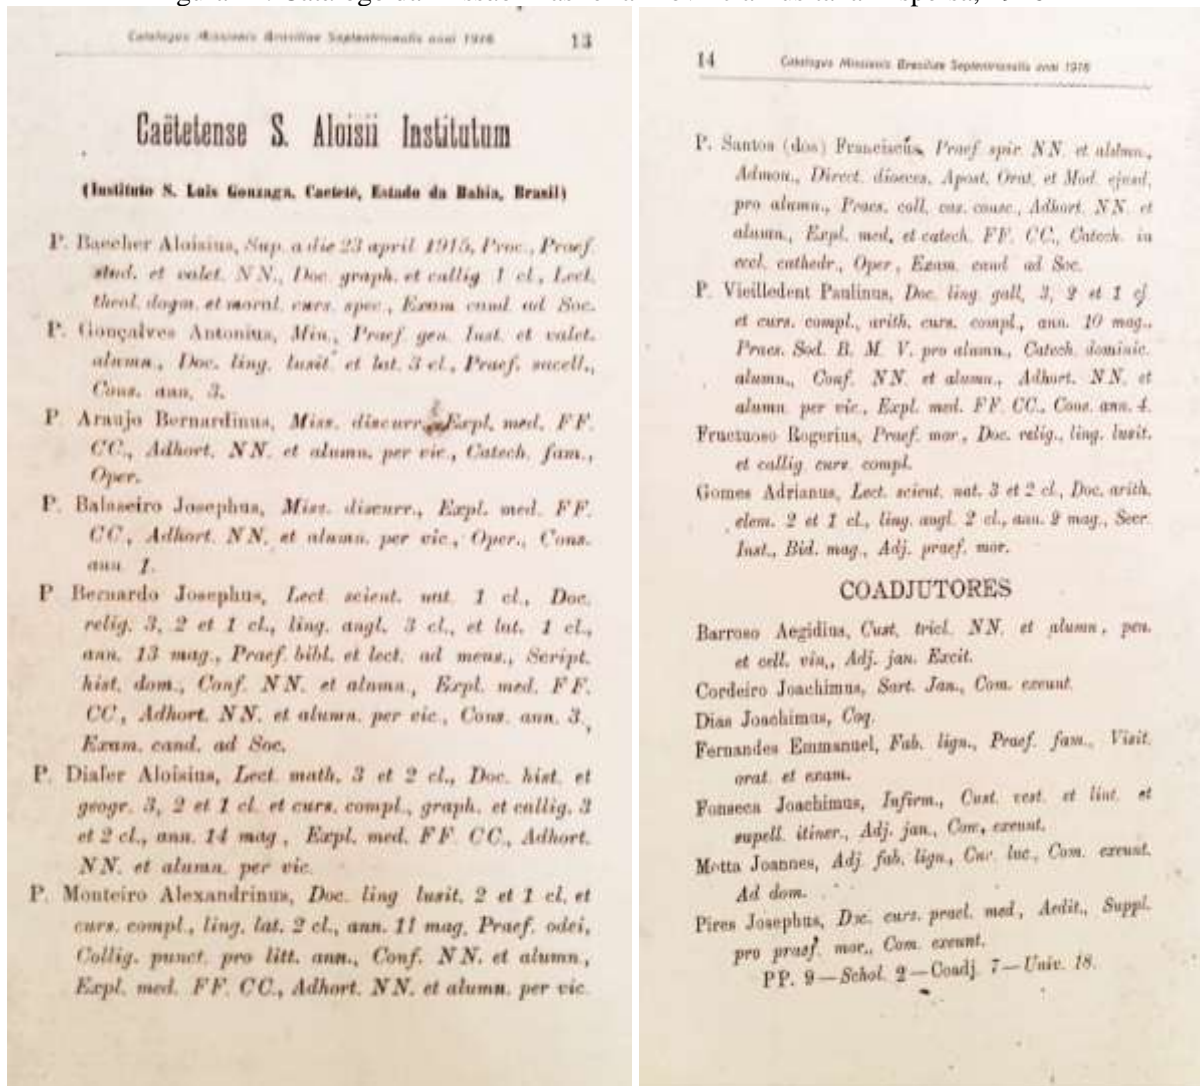 Catalogus Missionis Brasiliae Septentrionalis anni 1916 13
Caëtetense S. Aloisii Institutum
(Instituto S. Luis Gonzaga, Caeteté, Estado da Bahia, Brasil)
P. Baecher Aloisius, Sup. a die 23 april 1915, Proc., Praef.
stud. et valet. NN., Doc. graph. et callig 1 cl., Lect.
theol. dogm. et moral. curs. spec., Exam cand. ad Soc.
P. Gonçalves Antonius, Min., Praef gen. Inst. et valet.
alumn., Doc. ling. lusit et lat. 3 cl., Praef. sacell.,
Cons. ann. 3.
P Araujo Bernardinus, Miss. discurr., Expl. med. FF.
CC., Adhort. NN. et alumn. per vic., Catech. fam.,
Oper.
P. Balaseiro Josephus, Miss. discurr., Expl. med. FF.
CC, Adhort. NN. et alumn. per vic., Oper., Cons.
ann 1.
P Bernardo Josephus, Lect scient. nat. 1 cl., Doc.
relig. 3, 2 et 1 cl., ling. angl. 3 cl., et lat. 1 cl.,
ann. 13 mag., Praef. bibl. et lect. ad mens., Script.
hist. dom., Conf. NN. et alumn., Expl. med. FF.
CC, Adhort. NN. et alumn. per vic., Cons. ann. 3,
Exam. cand. ad Soc.
P. Dialer Aloisius, Lect. math. 3 et 2 cl., Doc. hist. et
geogr. 3, 2 et 1 cl. et curs. compl., graph. et callig. 3
et 2 cl., ann. 14 mag., Expl. med. FF. CC., Adhort.
NN. et alumn. per vic.
P. Monteiro Alexandrinus, Doc. ling lusit. 2 et 1 cl. et
curs. compl., ling. lat. 2 cl., ann. 11 mag. Praef. odei,
Collig. punct. pro litt. ann., Conf. NN. et alumn.,
Expl. med. FF. CC., Adhort. NN. et alumn. per vic.
14 Catalogus Missionis Brasiliae Septentrionalis anni 1916
P. Santos (dos) Franciscus, Praef spir. NN. et alumn.,
Admon., Direct. dioeces. Apost. Orat. et Mod. ejusd.
pro alumn., Praes. coll. cas. consc., Adhort. NN. et
alumn., Expl. med. et catech. FF. CC., Catech. in
eccl. cathedr., Oper., Exam. cand ad Soc.
P. Vieilledent Paulinus, Doc. ling gall, 3, 2 et 1 cl
et curs. compl., arith. curs. compl., ann. 10 mag.,
Praes. Sod. B. M. V. pro alumn., Catech. dominic.
alumn., Conf. NN. et alumn., Adhort. NN. et
alumn. per vic., Expl. med. FF. CC., Cons. ann. 4.
Fructuoso Rogerius, Praef. mor., Doc. relig., ling. lusit.
et callig curs. compl.
Gomes Adrianus, Lect. scient. nat. 3 et 2 cl., Doc. arith.
elem. 2 et 1 cl., ling. angl. 2 cl., ann. 2 mag., Secr.
Inst., Bid. mag., Adj. praef. mor.
COADJUTORES
Barroso Aegidius, Cust. tricl. NN. et alumn., pen.
et cell. vin., Adj. jan. Excit.
Cordeiro Joachimus, Sart. Jan., Com. exeunt.
Dias Joachimus, Coq.
Fernandes Emmanuel, Fab. lign., Praef. fam., Visit.
orat. et exam.
Fonseca Joachimus, Infirm., Cust. vest. et lint. et
supell. itiner., Adj. jan., Com. exeunt.
Motta Joannes, Adj. fab. lign., Cur. luc., Com. exeunt.
Ad dom.
Pires Josephus, Doc. curs. prael. med, Aedit., Suppl.
pro praef. mor., Com. exeunt.
PP. 9—Schol. 2—Coadj. 7—Univ. 18.